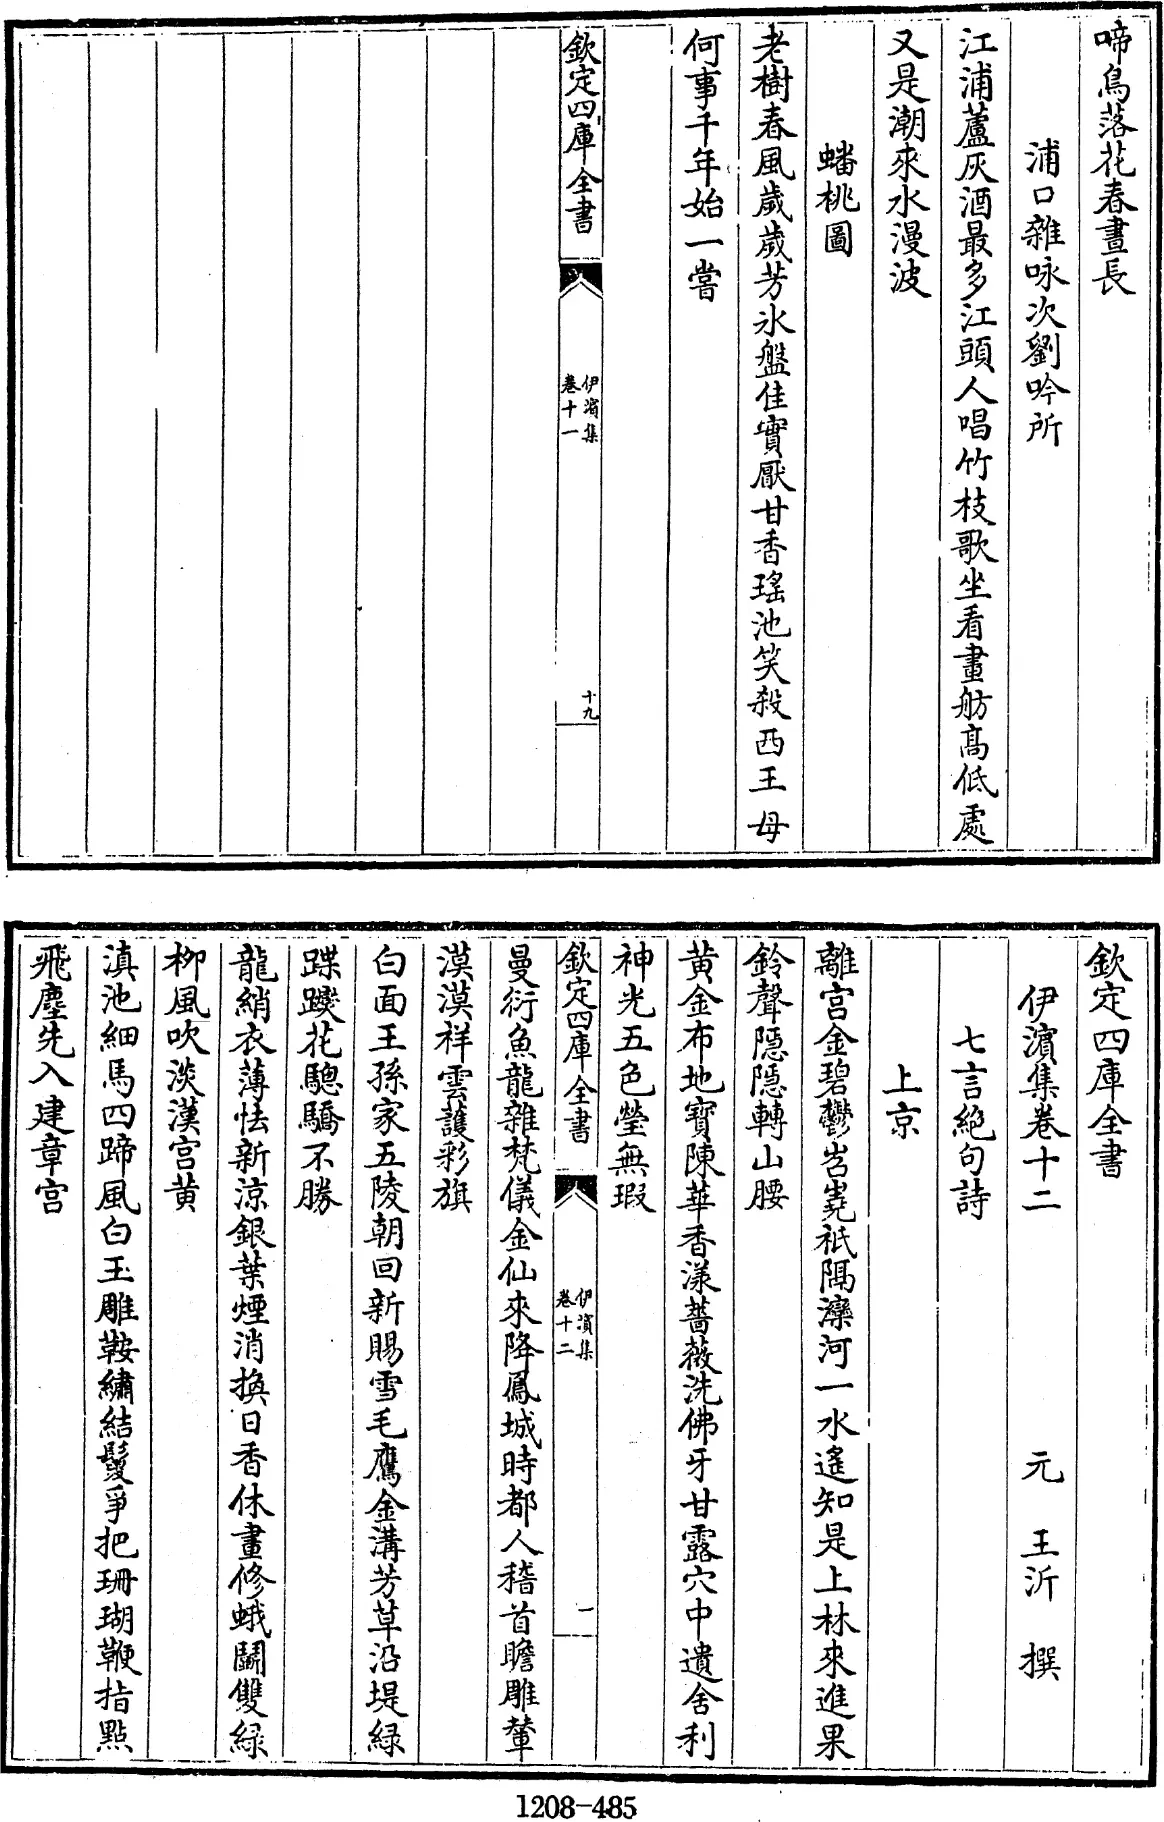 啼鳥落花春晝長
浦口雜咏次劉吟所
江浦蘆灰酒最多江頭人唱竹枝歌坐看畫舫髙低處
又是潮來水漫波
蟠桃圖
老樹春風歲歲芳氷盤佳實厭甘香瑤池笑殺西王母
何事千年始一嘗
欽定四庫全書
伊濱集
卷十一
十九
欽定四庫全書
伊濱集卷十二
元 王沂 撰
七言絶句詩
上京
離宫金碧鬱岧嶤祇隔灤河一水遙知是上林來進果
鈴聲隠隠轉山腰
黄金布地寳陳華香漾薔薇洗佛牙甘露穴中遺舍利
神光五色瑩無瑕
欽定四庫全書
伊濱集
卷十二
一
曼衍魚龍雜梵儀金仙來降鳳城時都人稽首瞻雕輦
漠漠祥雲護彩旗
白面王孫家五陵朝回新賜雪毛鷹金溝芳草沿堤緑
蹀躞花驄驕不勝
龍綃衣薄怯新涼銀葉煙消換日香休畫修蛾鬭雙緑
柳風吹淡漢宫黄
滇池細馬四蹄風白玉雕鞍繡結騣爭把珊瑚鞭指點
飛塵先入建章宫
1208-485